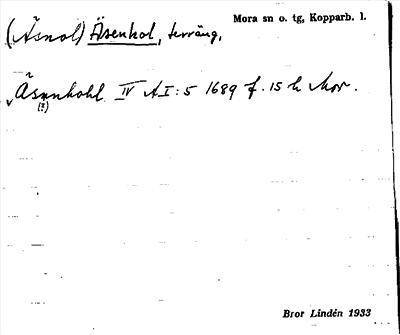 (Äsnol) Äsenhol, terräng,
Mora sn o. tg, Kopparb. l.
"Äsunhohl IV AI:5 1689 f. 15 h Mor.
(?)
Bror Lindén 1933